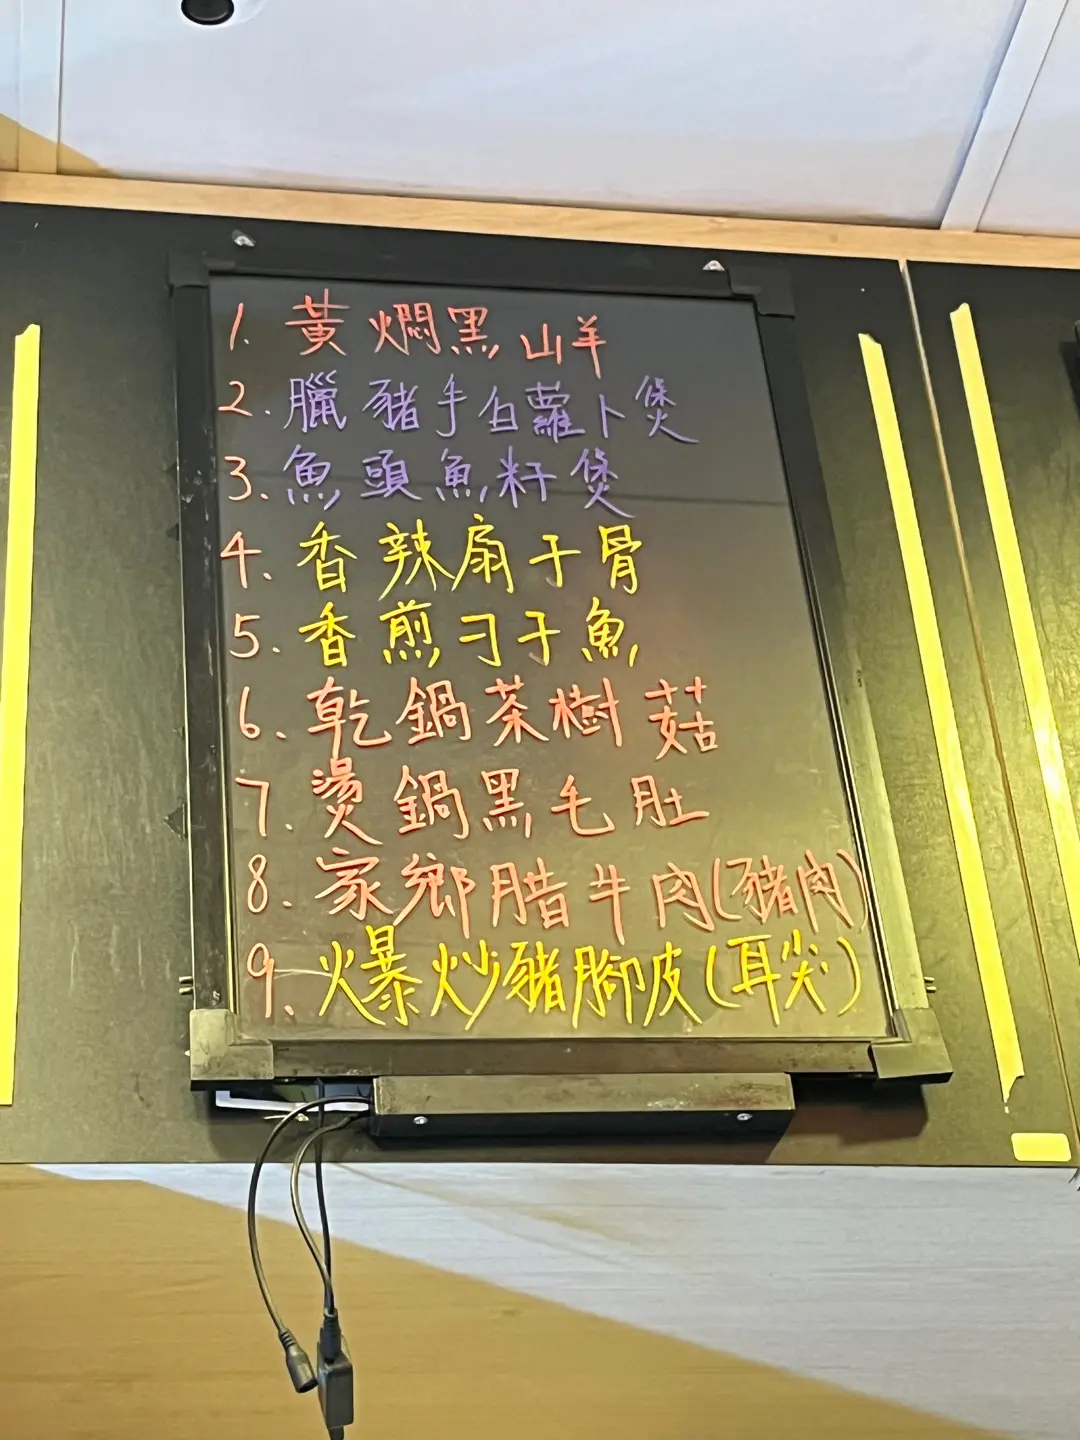 1. 黃燜黑山羊
2. 臘豬手白蘿卜煲
3. 魚頭魚籽煲
4. 香辣扇子骨
5. 香煎刁子魚
6. 乾鍋茶樹菇
7. 燙鍋黑毛肚
8. 家鄉腊牛肉(豬肉)
9. 火爆炒豬腳皮(耳尖)